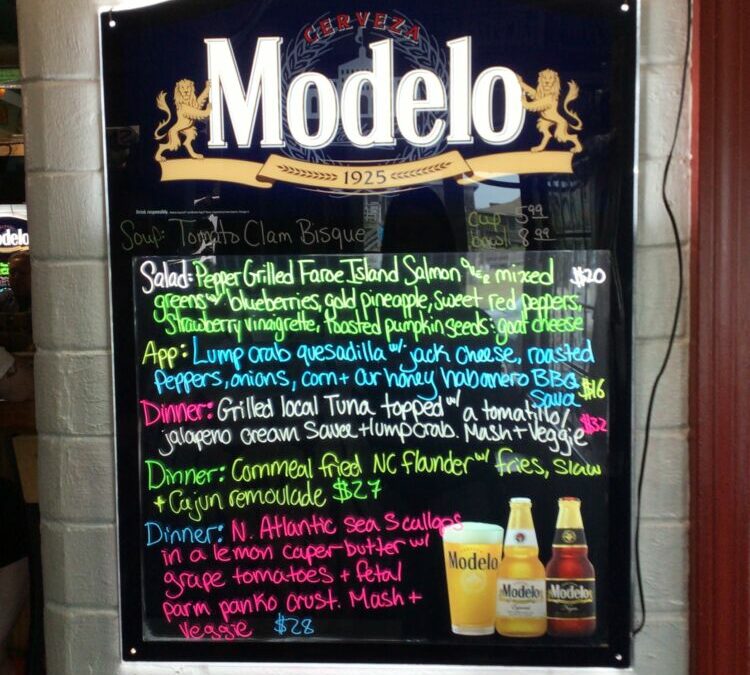 CERVEZA
Modelo
1925
Drink responsibly.
Soup: Tomato Clam Bisque
cup 5.99
bowl 8.99
Modelo
Salad: Pepper Grilled Faroe Island Salmon over mixed $20
greens w/ blueberries, gold pineapple, sweet red peppers,
Strawberry vinaigrette, roasted pumpkin seeds + goat cheese
App: Lump crab quesadilla w/ jack cheese, roasted
peppers, onions, corn + our honey habanero BBQ $16
Dinner: Grilled local Tuna topped w/ a tomatillo/
jalapeno cream sauce + lump crab. Mash + Veggie $32
Dinner: Cornmeal fried NC flounder w/ fries, slaw
+ Cajun remoulade $27
Dinner: N. Atlantic sea Scallops
in a lemon caper butter w/
grape tomatoes + feta/
parm panko crust. Mash +
Veggie $28
Modelo
Modelo
Modelo